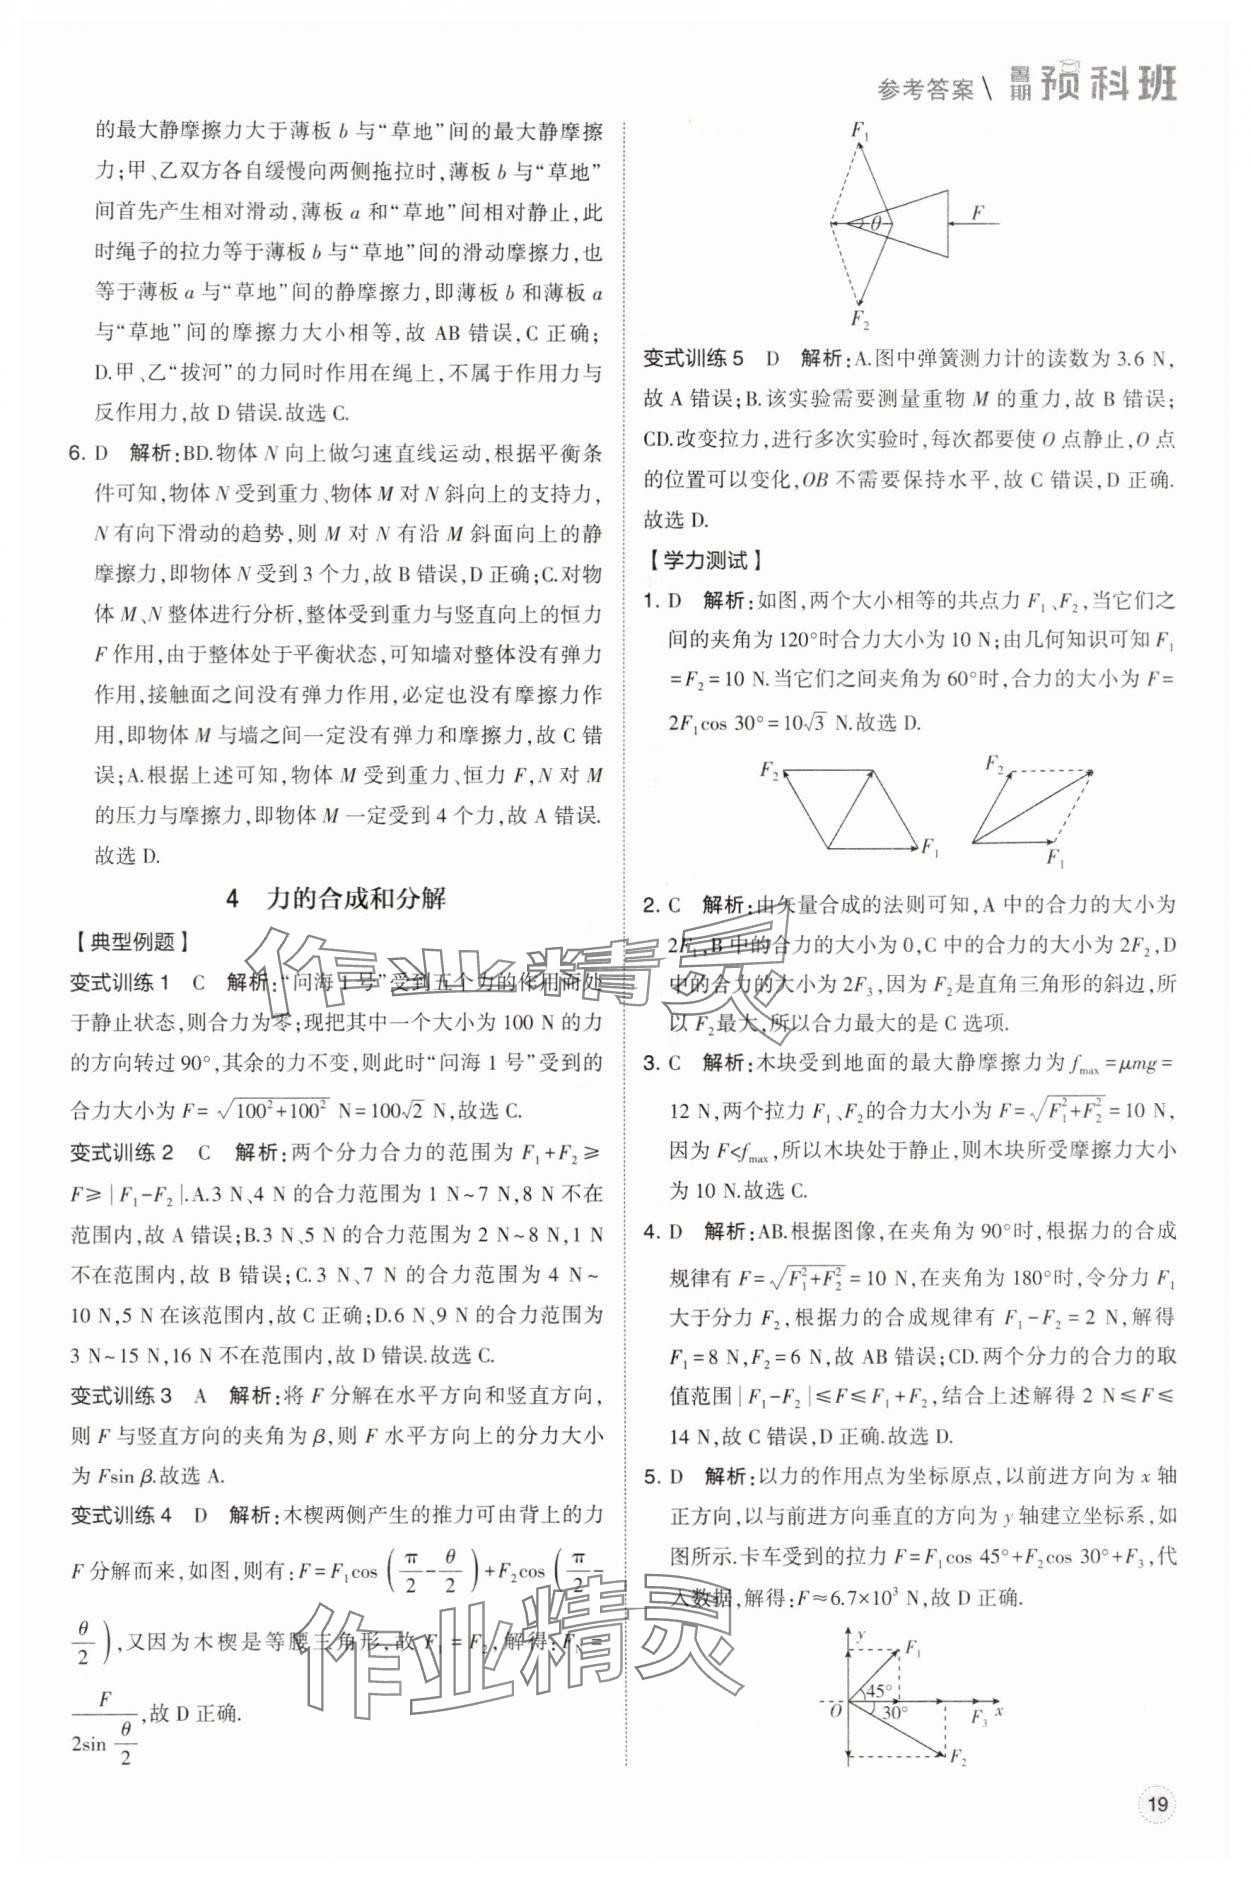 参考答案 \ 暑期 预科班
的最大静摩擦力大于薄板 b 与“草地”间的最大静摩擦
力;甲、乙双方各自缓慢向两侧拖拉时,薄板 b 与“草地”
间首先产生相对滑动,薄板 a 和“草地”间相对静止,此
时绳子的拉力等于薄板 b 与“草地”间的滑动摩擦力,也
等于薄板 a 与“草地”间的静摩擦力,即薄板 b 和薄板 a
与“草地”间的摩擦力大小相等,故 AB 错误,C 正确;
D.甲、乙“拔河”的力同时作用在绳上,不属于作用力与
反作用力,故 D 错误.故选 C.
6. D 解析:BD.物体 N 向上做匀速直线运动,根据平衡条
件可知,物体 N 受到重力、物体 M 对 N 斜向上的支持力,
N 有向下滑动的趋势,则 M 对 N 有沿 M 斜面向上的静
摩擦力,即物体 N 受到 3 个力,故 B 错误,D 正确;C.对物
体 M、N 整体进行分析,整体受到重力与竖直向上的恒力
F 作用,由于整体处于平衡状态,可知墙对整体没有弹力
作用,接触面之间没有弹力作用,必定也没有摩擦力作
用,即物体 M 与墙之间一定没有弹力和摩擦力,故 C 错
误;A.根据上述可知,物体 M 受到重力、恒力 F,N 对 M
的压力与摩擦力,即物体 M 一定受到 4 个力,故 A 错误.
故选 D.
4 力的合成和分解
【典型例题】
变式训练 1 C 解析:“问海 1 号”受到五个力的作用而处
于静止状态,则合力为零;现把其中一个大小为 100 N 的力
的方向转过 90°,其余的力不变,则此时“问海 1 号”受到的
合力大小为 F= √(100²+100²) N=100√2 N,故选 C.
变式训练 2 C 解析:两个分力合力的范围为 F₁+F₂≥
F≥|F₁-F₂|.A.3 N、4 N 的合力范围为 1 N~7 N,8 N 不在
范围内,故 A 错误;B.3 N、5 N 的合力范围为 2 N~8 N,1 N
不在范围内,故 B 错误;C.3 N、7 N 的合力范围为 4 N~
10 N,5 N 在该范围内,故 C 正确;D.6 N、9 N 的合力范围为
3 N~15 N,16 N 不在范围内,故 D 错误.故选 C.
变式训练 3 A 解析:将 F 分解在水平方向和竖直方向,
则 F 与竖直方向的夹角为 β,则 F 水平方向上的分力大小
为 Fsin β.故选 A.
变式训练 4 D 解析:木楔两侧产生的推力可由背上的力
F 分解而来,如图,则有:F=F₁cos(π/2-θ/2)+F₂cos(π/2-
θ/2),又因为木楔是等腰三角形,故 F₁=F₂,解得:F_N=
F/(2sin θ/2),故 D 正确.
F₁
θ
F
F₂
变式训练 5 D 解析:A.图中弹簧测力计的读数为 3.6 N,
故 A 错误;B.该实验需要测量重物 M 的重力,故 B 错误;
CD.改变拉力,进行多次实验时,每次都要使 O 点静止,O 点
的位置可以变化,OB 不需要保持水平,故 C 错误,D 正确.
故选 D.
【学力测试】
1. D 解析:如图,两个大小相等的共点力 F₁、F₂,当它们之
间的夹角为 120°时合力大小为 10 N;由几何知识可知 F₁
=F₂=10 N.当它们之间夹角为 60°时,合力的大小为 F=
2F₁cos 30°=10√3 N.故选 D.
F₂
F₁
F₂
F₁
2. C 解析:由矢量合成的法则可知,A 中的合力的大小为
2F₁,B 中的合力的大小为 0,C 中的合力的大小为 2F₂,D
中的合力的大小为 2F₃,因为 F₂是直角三角形的斜边,所
以 F₂最大,所以合力最大的是 C 选项.
3. C 解析:木块受到地面的最大静摩擦力为 f_max=μmg=
12 N,两个拉力 F₁、F₂的合力大小为 F=√(F₁²+F₂²)=10 N,
因为 F<f_max,所以木块处于静止,则木块所受摩擦力大小
为 10 N.故选 C.
4. D 解析:AB.根据图像,在夹角为 90°时,根据力的合成
规律有 F=√(F₁²+F₂²)=10 N,在夹角为 180°时,令分力 F₁
大于分力 F₂,根据力的合成规律有 F₁-F₂=2 N,解得
F₁=8 N,F₂=6 N,故 AB 错误;CD.两个分力的合力的取
值范围|F₁-F₂|≤F≤F₁+F₂,结合上述解得 2 N≤F≤
14 N,故 C 错误,D 正确.故选 D.
5. D 解析:以力的作用点为坐标原点,以前进方向为 x 轴
正方向,以与前进方向垂直的方向为 y 轴建立坐标系,如
图所示.卡车受到的拉力 F=F₁cos 45°+F₂cos 30°+F₃,代
入数据,解得:F≈6.7×10³ N,故 D 正确.
y
F₁
45°
O
30°
F₃
x
F₂
作业精灵
作业精灵
19